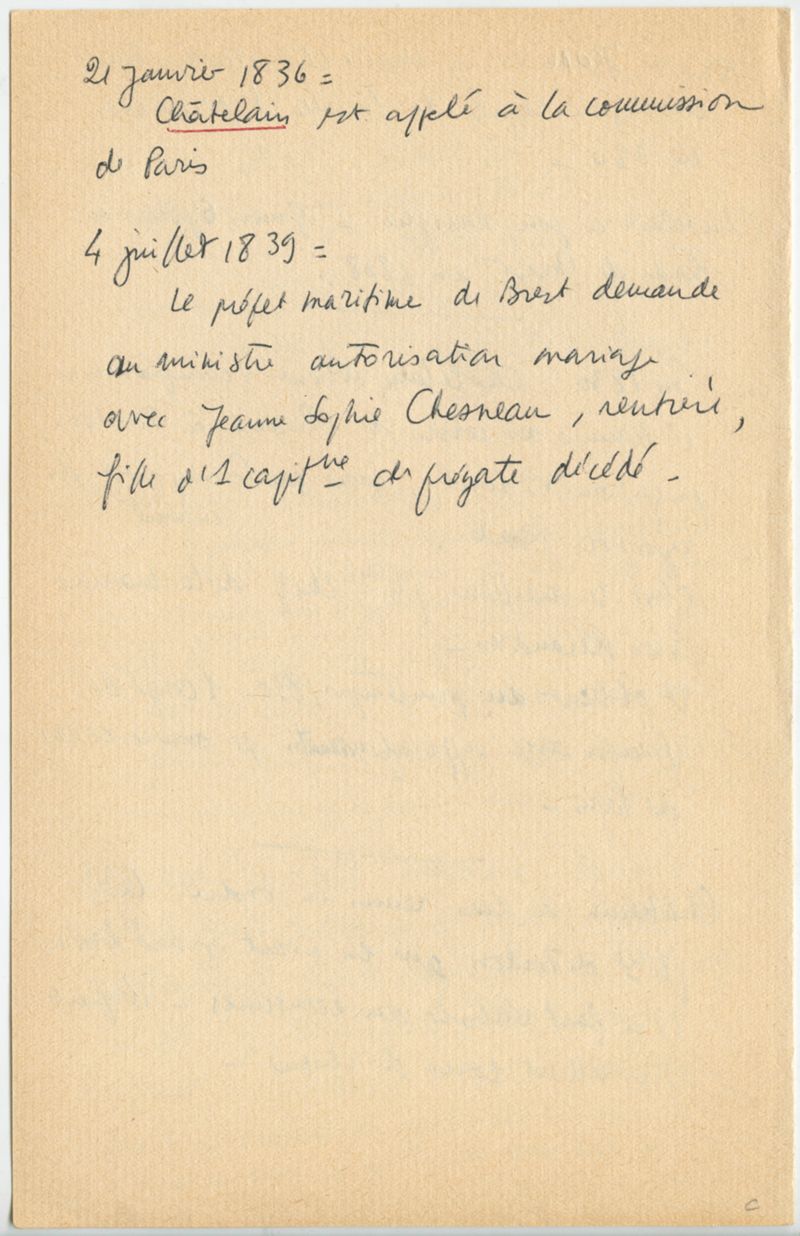 21 janvier 1836 =
Châtelain est appelé à la commission
de Paris
4 juillet 1839 =
Le préfet maritime de Brest demande
au ministre autorisation mariage
avec Jeanne Sophie Chesneau, rentière,
fille d'1 capitne de frégate décédé -
c